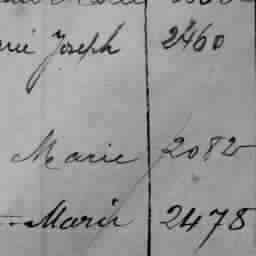 Joseph 2460
Marie 2082
Marie 2478